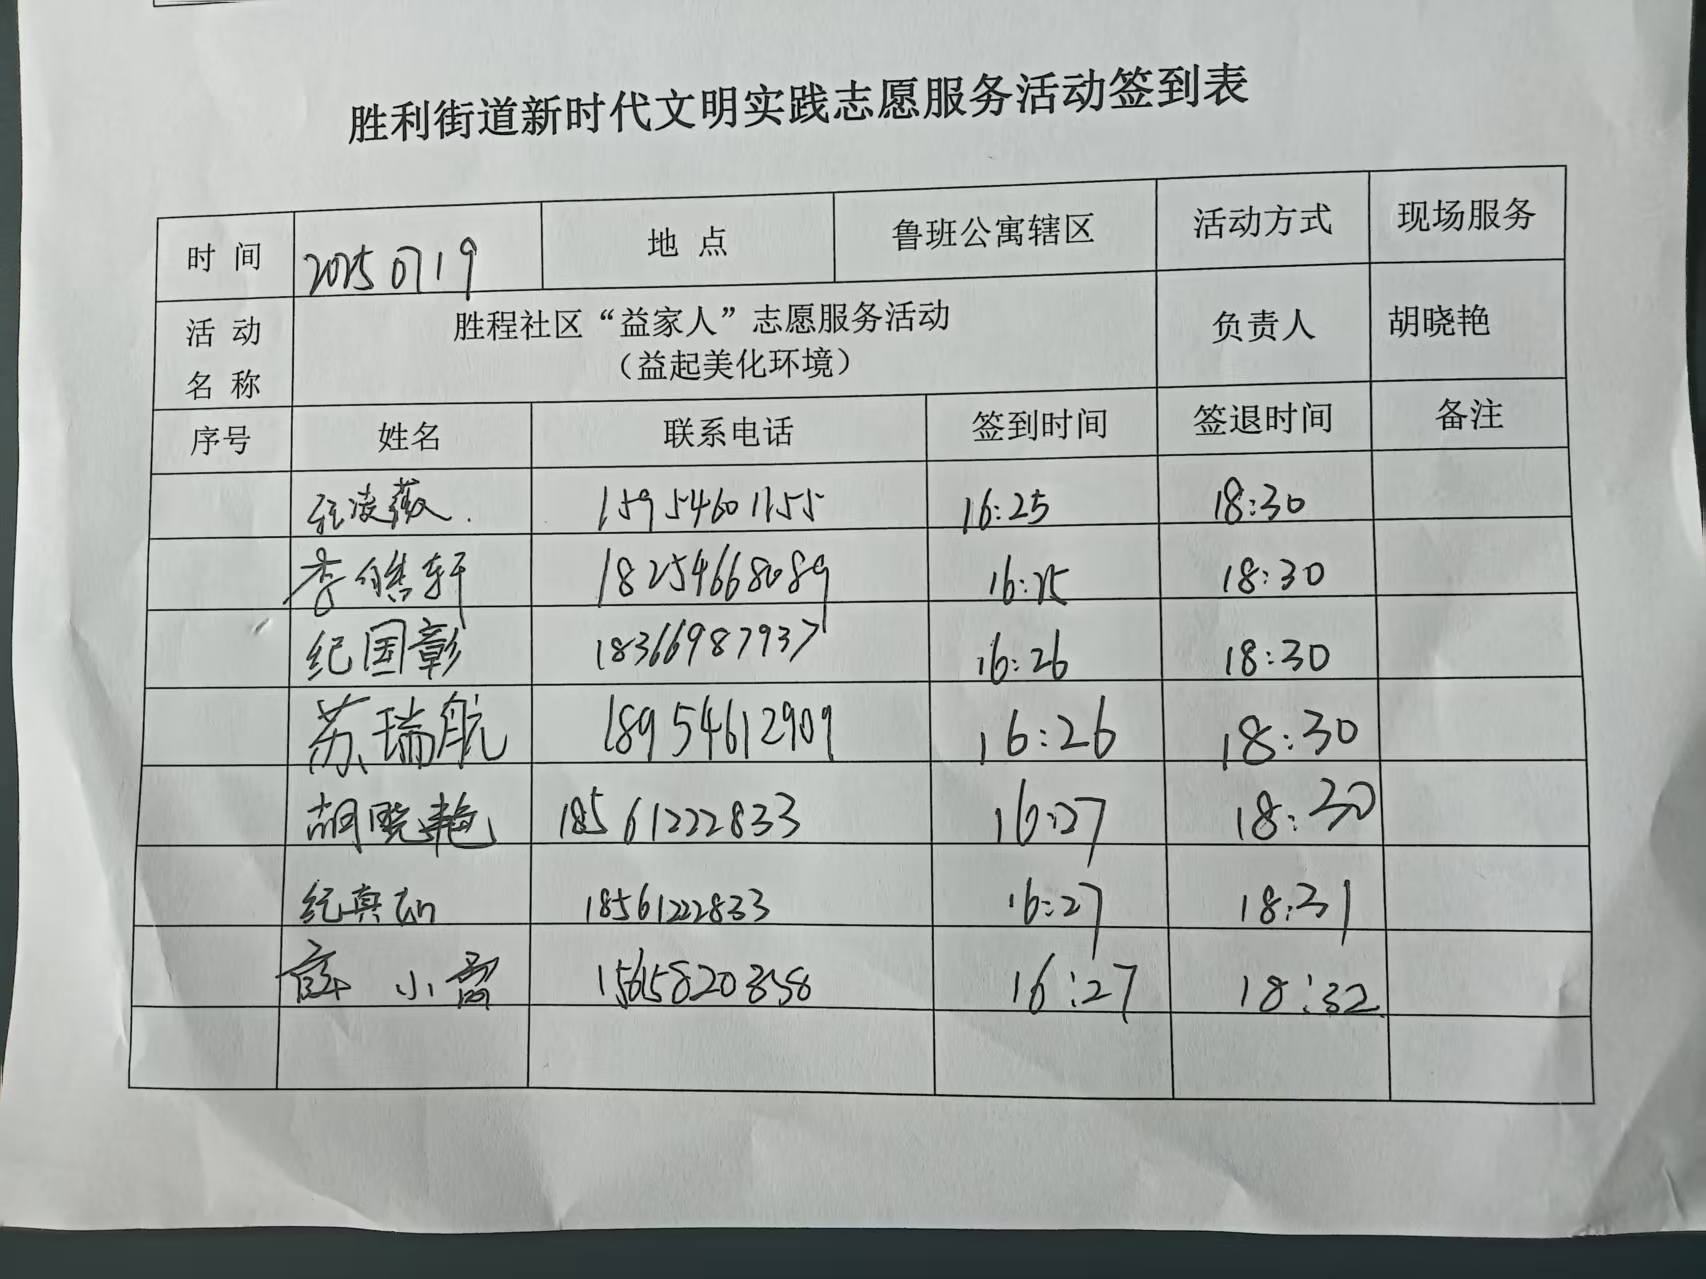 胜利街道新时代文明实践志愿服务活动签到表
时 间 20250719 地 点 鲁班公寓辖区 活动方式 现场服务
活 动 名 称 胜程社区“益家人”志愿服务活动 负责人 胡晓艳
（益起美化环境）
序号 姓名 联系电话 签到时间 签退时间 备注
凌薇 15954601155 16:25 18:30
李皓轩 18254668089 16:25 18:30
纪国彰 18366987937 16:26 18:30
苏瑞航 18954612909 16:26 18:30
胡晓艳 18561222833 16:27 18:30
纪真 18561222833 16:27 18:31
薛小雷 15615820358 16:27 18:32